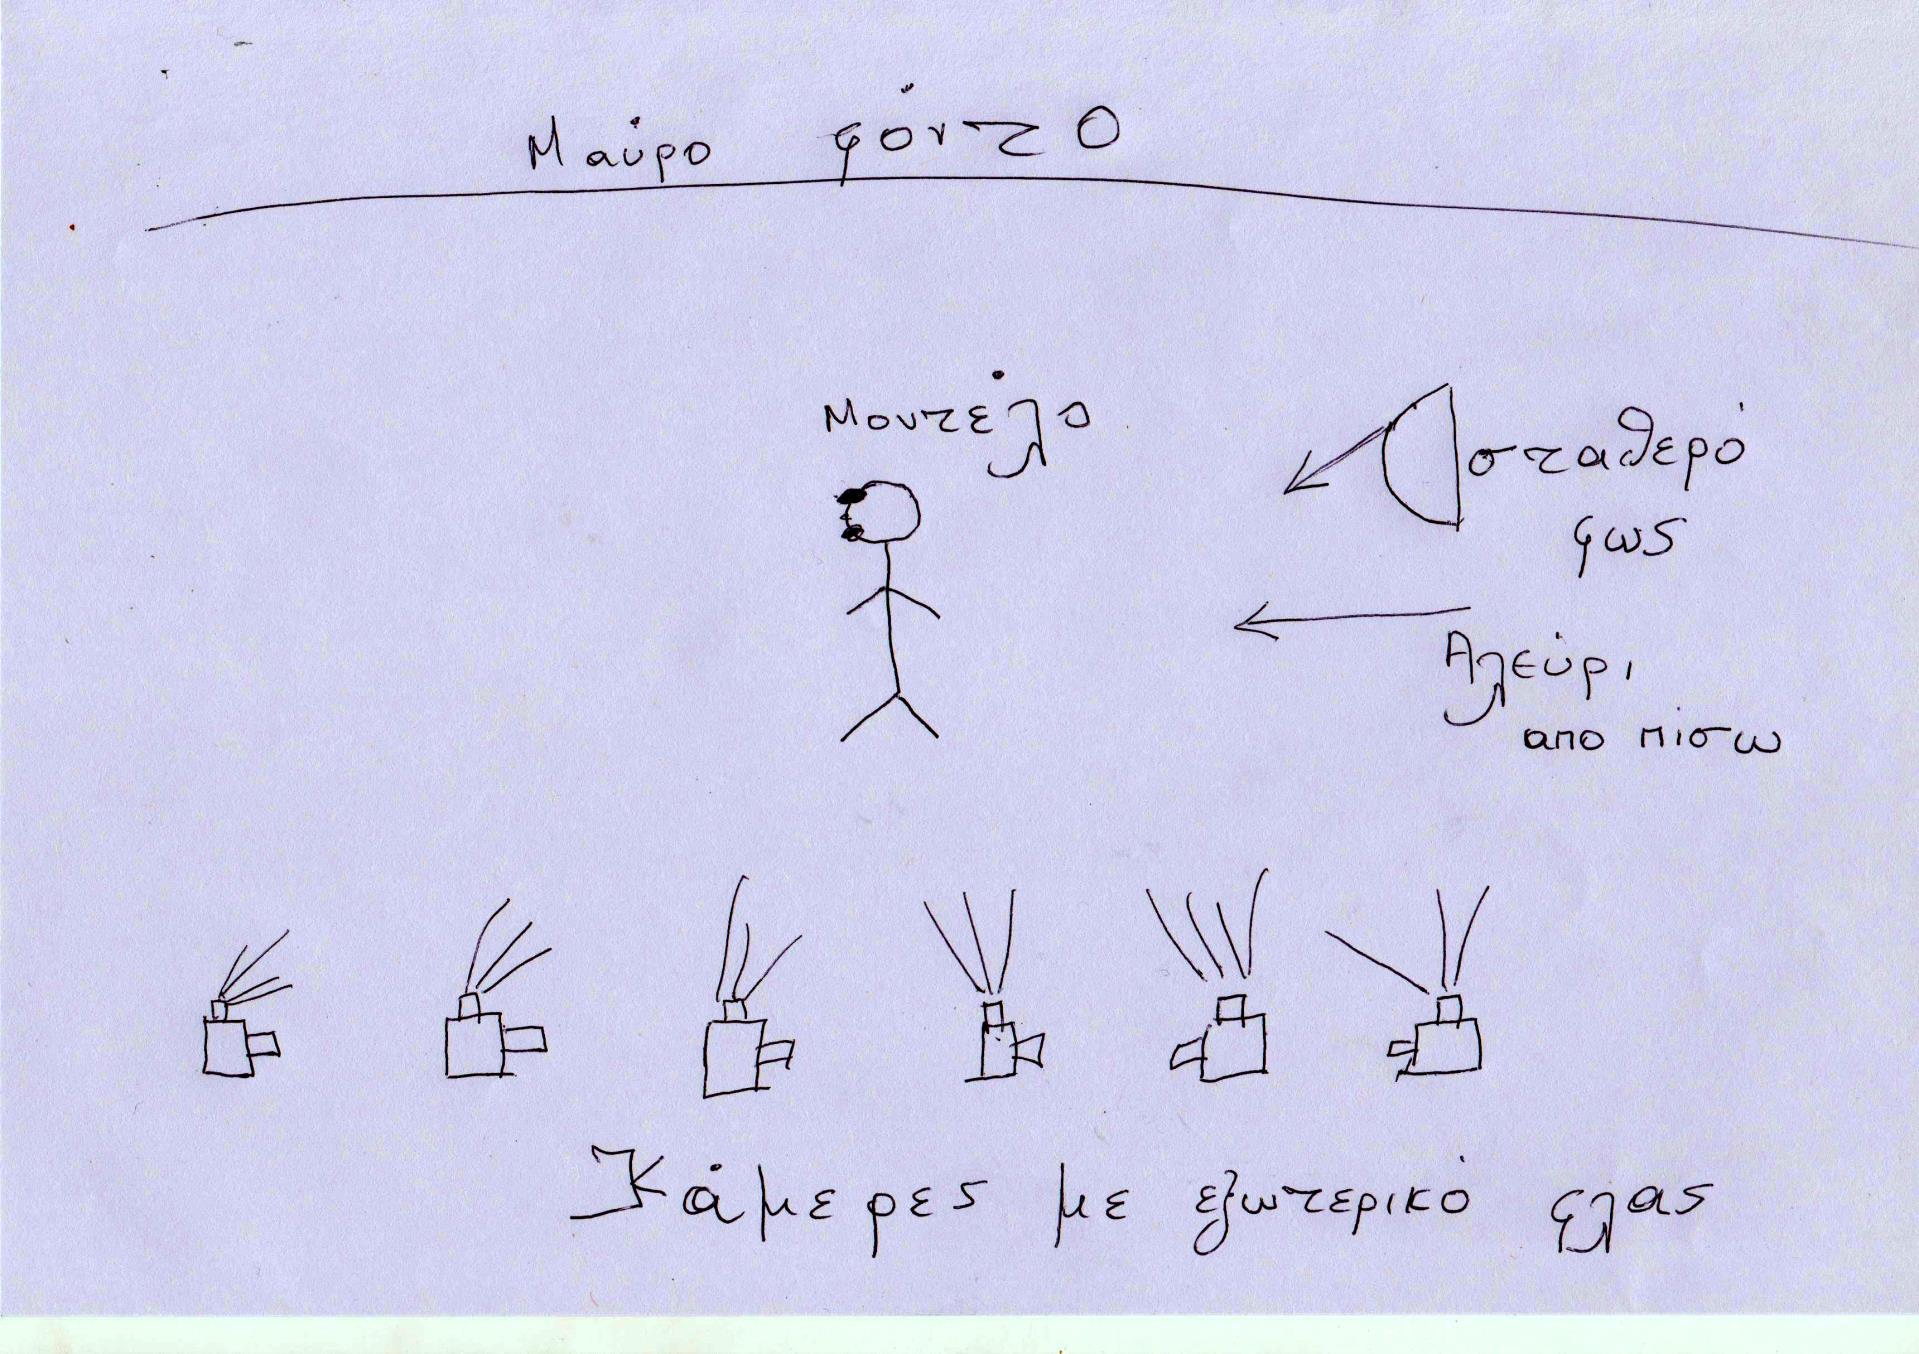 Μαύρο φόντο
Μοντέλο
σταθερό
φως
Αλεύρι
απο πίσω
Κάμερες με εξωτερικό φλας